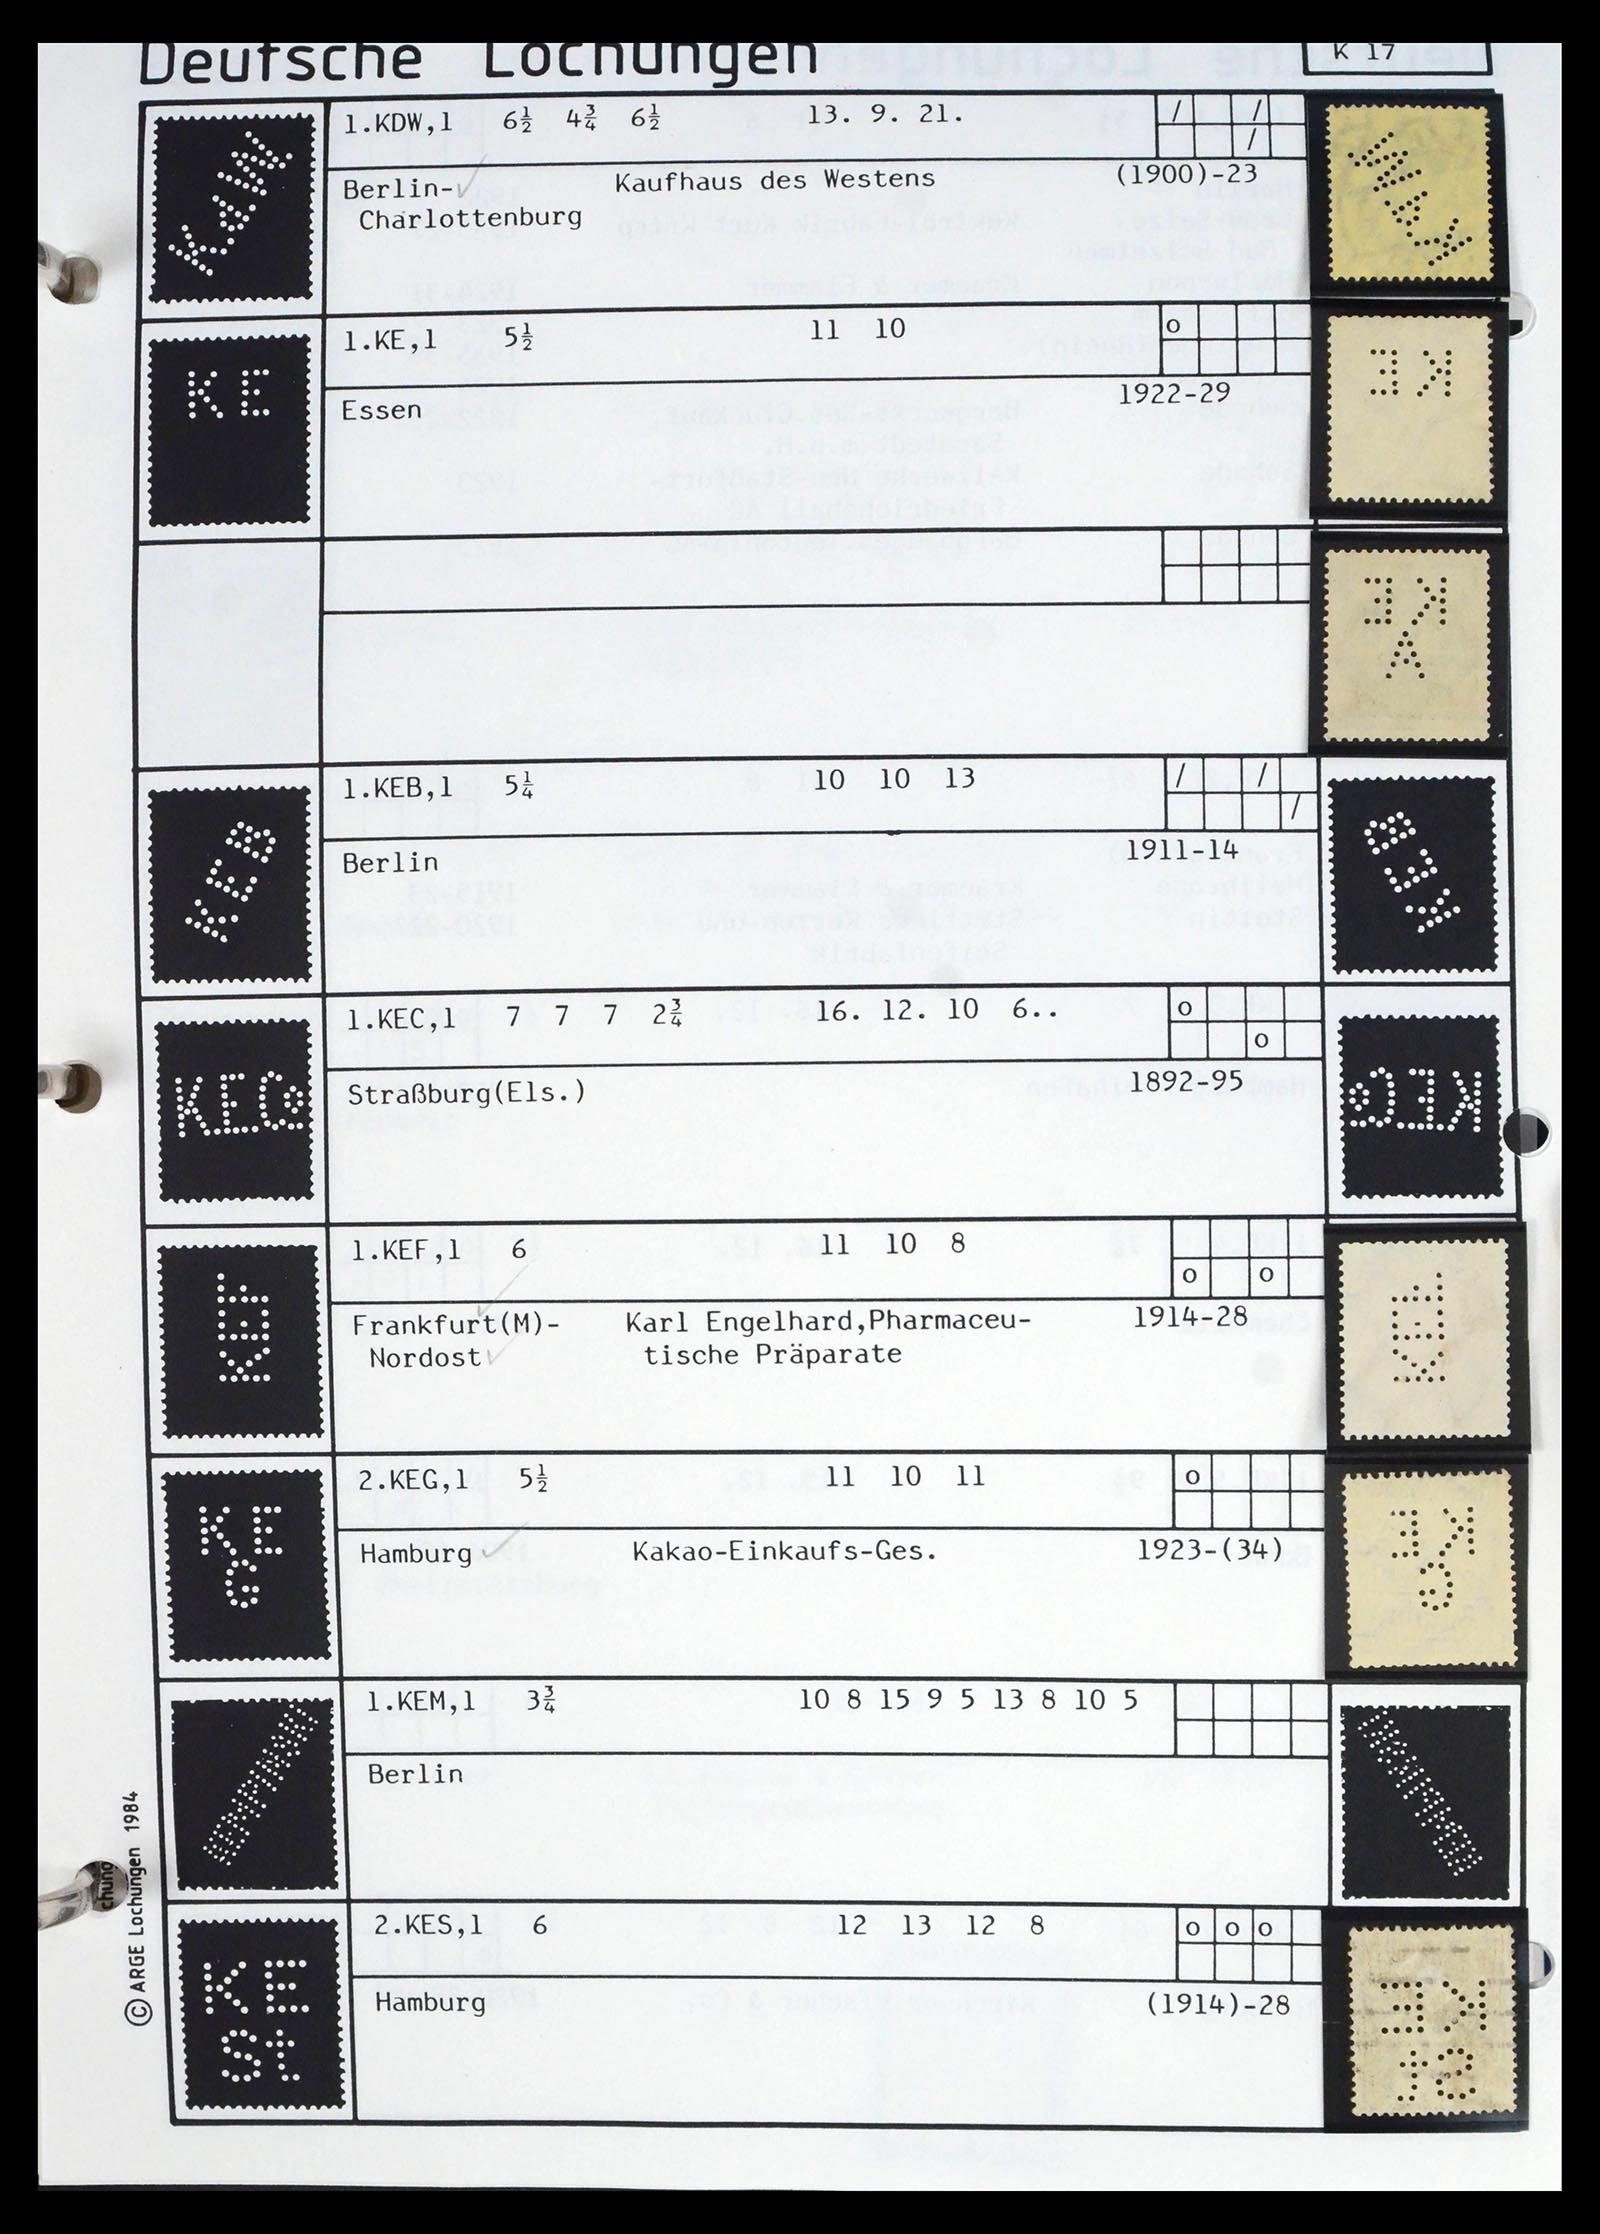 Deutsche Lochungen
K 17
KdW
1.KDW,1 6½ 4¾ 6½ 13. 9. 21. / / /
Berlin- Kaufhaus des Westens (1900)-23
Charlottenburg
KE
1.KE,1 5½ 11 10 o
Essen 1922-29
KE
A
KEB
1.KEB,1 5¼ 10 10 13 / / /
Berlin 1911-14
1.KEC,1 7 7 7 2¾ 16. 12. 10 6.. o o
Straßburg(Els.) 1892-95
KEF
1.KEF,1 6 11 10 8 o o
Frankfurt(M)- Karl Engelhard,Pharmaceu- 1914-28
Nordost tische Präparate
KE
G
2.KEG,1 5½ 11 10 11 o
Hamburg Kakao-Einkaufs-Ges. 1923-(34)
1.KEM,1 3¾ 10 8 15 9 5 13 8 10 5
Berlin
KE
St
2.KES,1 6 12 13 12 8 o o o
Hamburg (1914)-28
© ARGE Lochungen 1984
chung